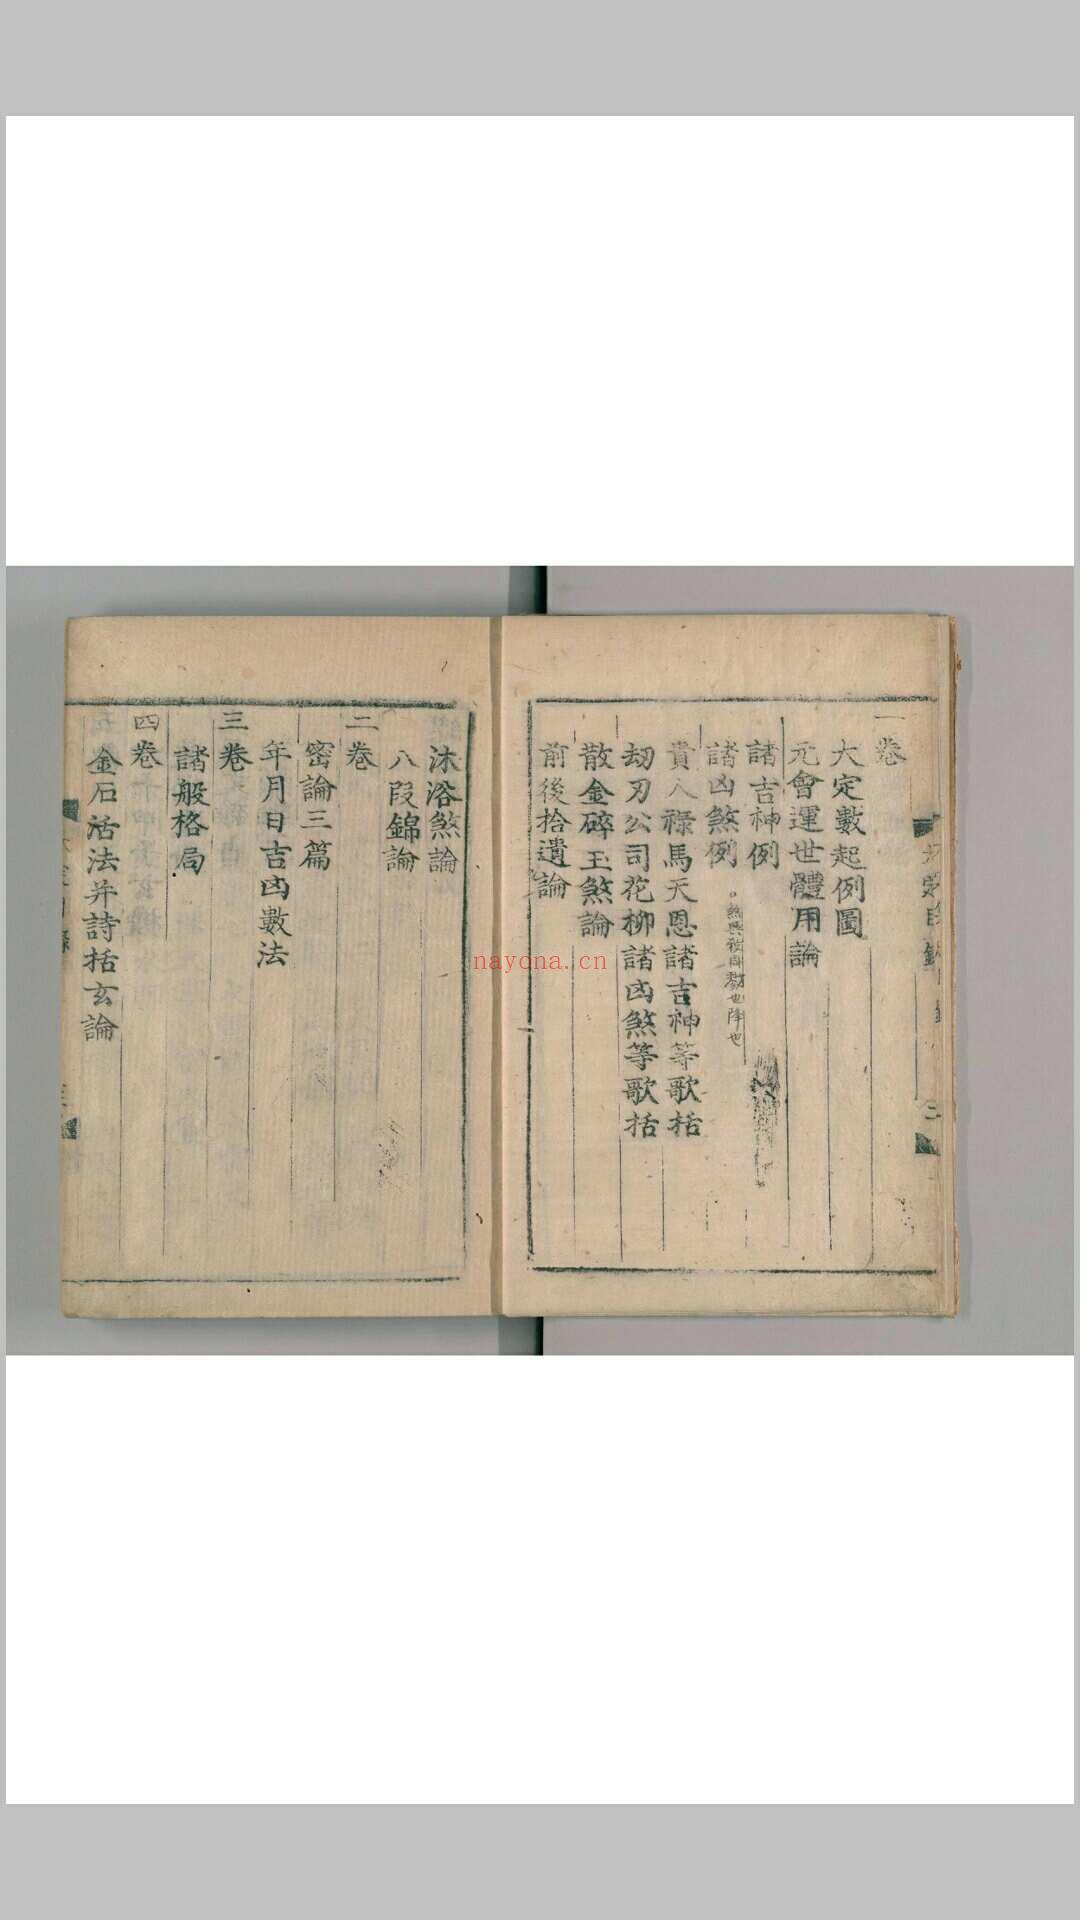 一卷
大定數起例圖
元會運世體用論
諸吉神例
諸凶煞例
貴人祿馬天恩諸吉神等歌括
刼刃公司花柳諸凶煞等歌括
散金碎玉煞論
前後拾遺論
沐浴煞論
八段錦論
二卷
密論三篇
年月日吉凶數法
三卷
諸般格局
四卷
金石活法并詩括玄論
nayona.cn